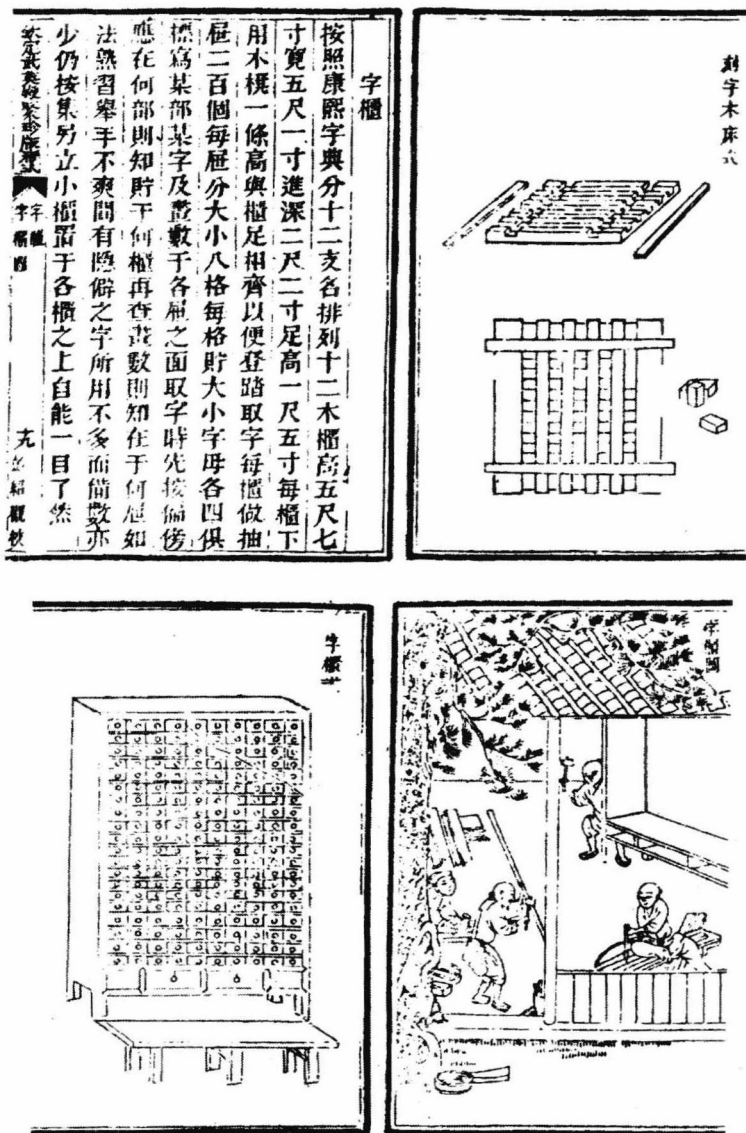 刻字木床式
字櫃
按照康熙字典分十二支名排列十二木櫃高五尺七
寸寬五尺一寸進深二尺二寸足高一尺五寸每櫃下
用木櫈一條高與櫃足相齊以便登踏取字每櫃做抽
屜二百個每屜分大小八格每格貯大小字母各四俱
標寫某部某字及畫數于各屜之面取字時先按偏傍
應在何部則知貯于何櫃再查畫數則知在于何屜如
法熟習舉手不爽間有隱僻之字所用不多而備數亦
少仍按集另立小櫃置于各櫃之上自能一目了然
欽定武英殿聚珍版程式
字櫃
字櫃圖
字櫃式